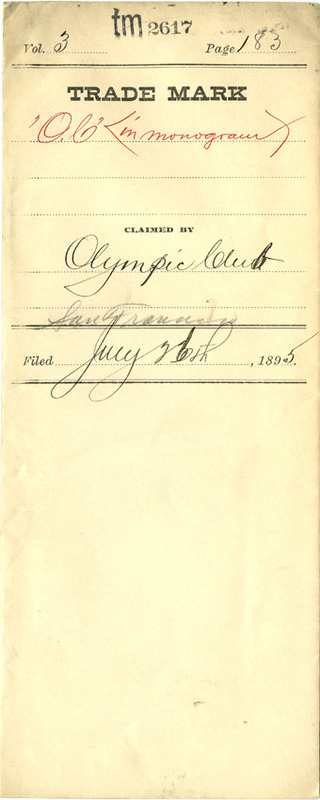 tm 2617
Vol. 3 Page 183
TRADE MARK
"O.C" (in monogram)
CLAIMED BY
Olympic Club
San Francisco
Filed July 26th, 1895.